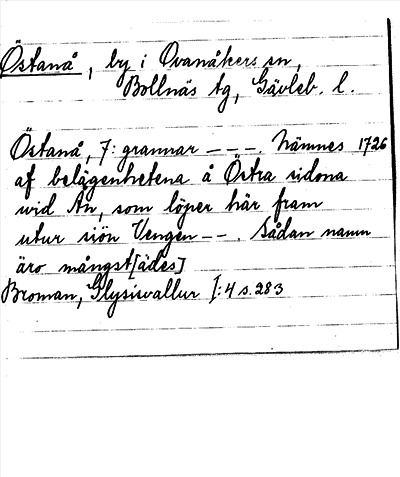 Östanå, by i Ovanåkers sn,
Bollnäs tg, Gävleb. l.
Östanå, 7: grannar ---. Nämnes 1726
af belägenhetena å Östra sidona
wid Ån, som löper här fram
utur siön Vengen --. Sådan namn
äro mångst[ädes]
Broman, Glysisvallur I:4 s. 283